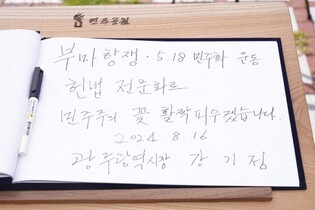 민주공원
부마항쟁 · 5.18 민주화 운동
헌법 전문화로
민주주의 꽃 활짝 피우겠습니다.
2024. 8. 16
광주광역시장 강기정